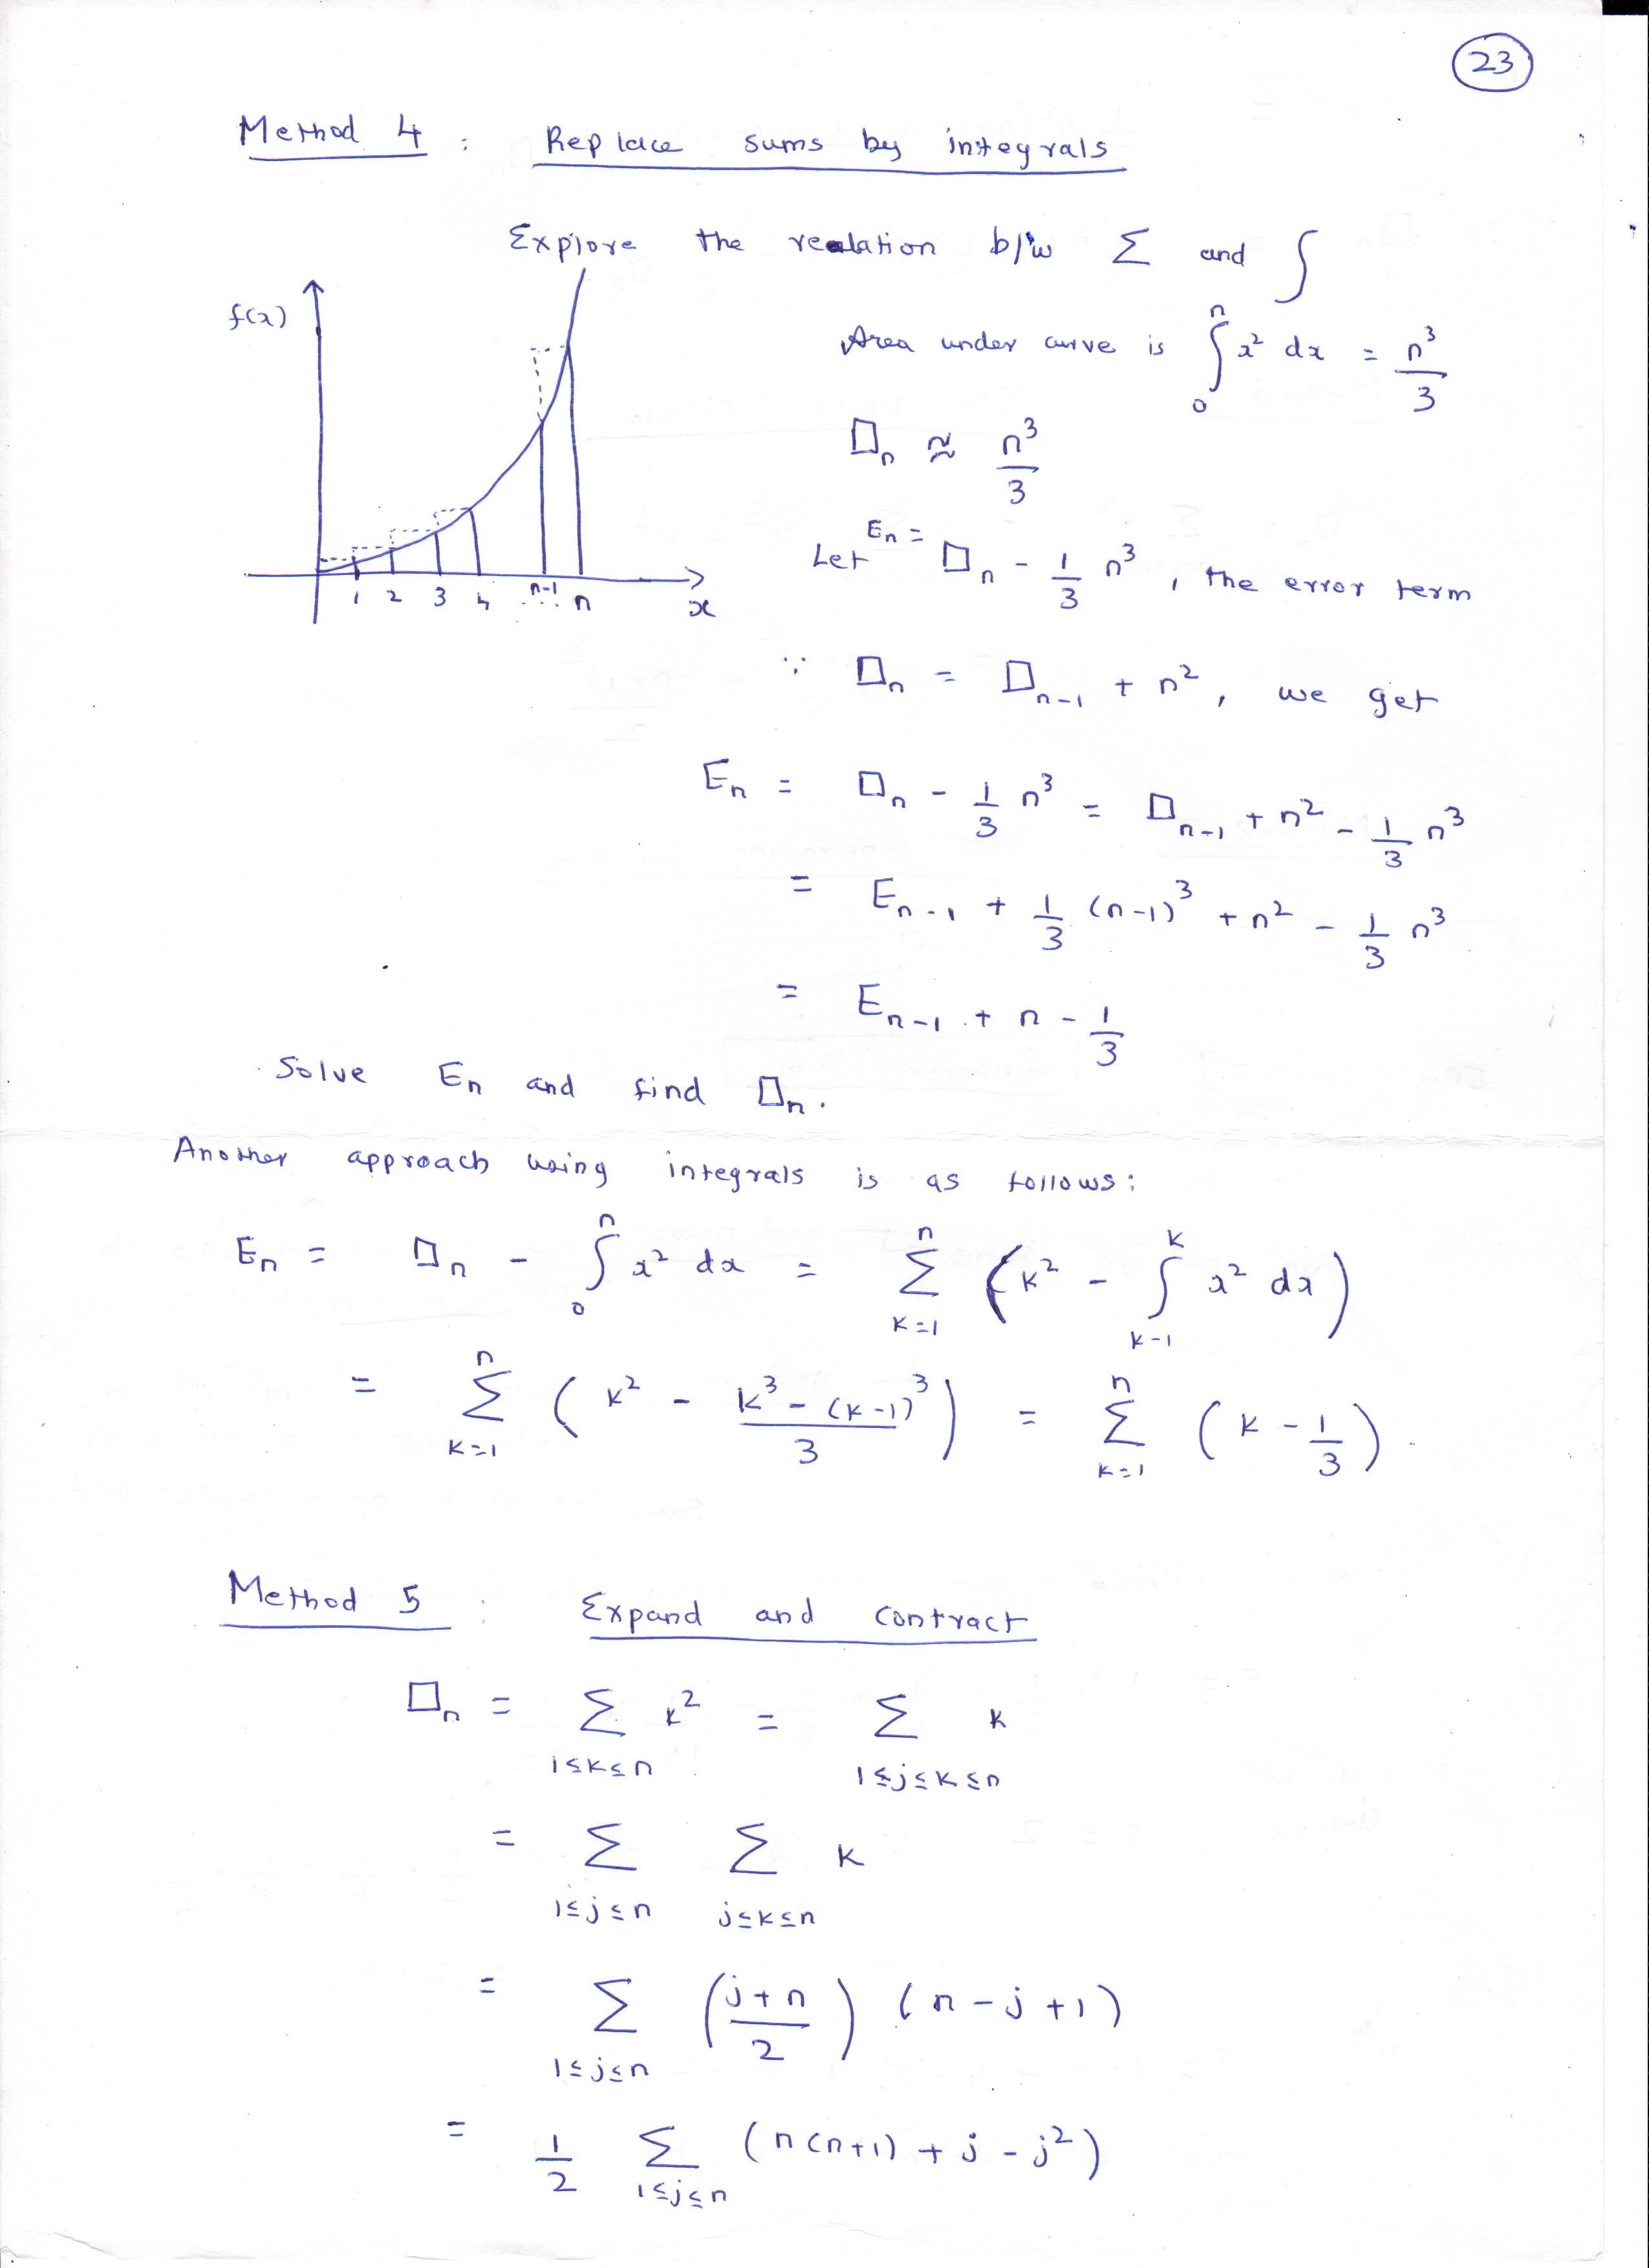 23
Method 4 : Replace sums by integrals
Explore the realation b/w Σ and ∫
f(x)
Area under curve is ∫₀ⁿ x² dx = n³/3
□ₙ ≈ n³/3
Let Eₙ = □ₙ - 1/3 n³, the error term
1 2 3 4 ... n-1 n x
∵ □ₙ = □ₙ₋₁ + n², we get
Eₙ = □ₙ - 1/3 n³ = □ₙ₋₁ + n² - 1/3 n³
= Eₙ₋₁ + 1/3 (n-1)³ + n² - 1/3 n³
= Eₙ₋₁ + n - 1/3
Solve Eₙ and find □ₙ.
Another approach using integrals is as follows:
Eₙ = □ₙ - ∫₀ⁿ x² dx = Σ_{k=1}^{n} (k² - ∫_{k-1}^{k} x² dx)
= Σ_{k=1}^{n} (k² - (k³ - (k-1)³)/3) = Σ_{k=1}^{n} (k - 1/3).
Method 5 : Expand and contract
□ₙ = Σ_{1≤k≤n} k² = Σ_{1≤j≤k≤n} k
= Σ_{1≤j≤n} Σ_{j≤k≤n} k
= Σ_{1≤j≤n} ((j+n)/2) (n-j+1)
= 1/2 Σ_{1≤j≤n} (n(n+1) + j - j²)